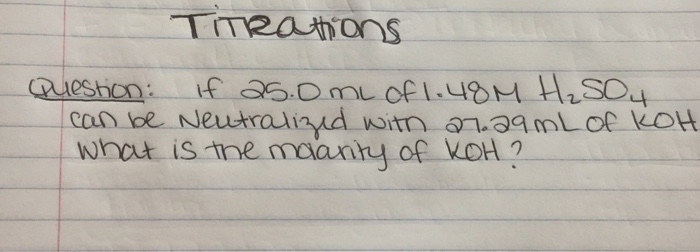 Titrations
Question: If 25.0 mL of 1.48M H₂SO₄
can be Neutralized with 27.29mL of KOH
what is the molarity of KOH?